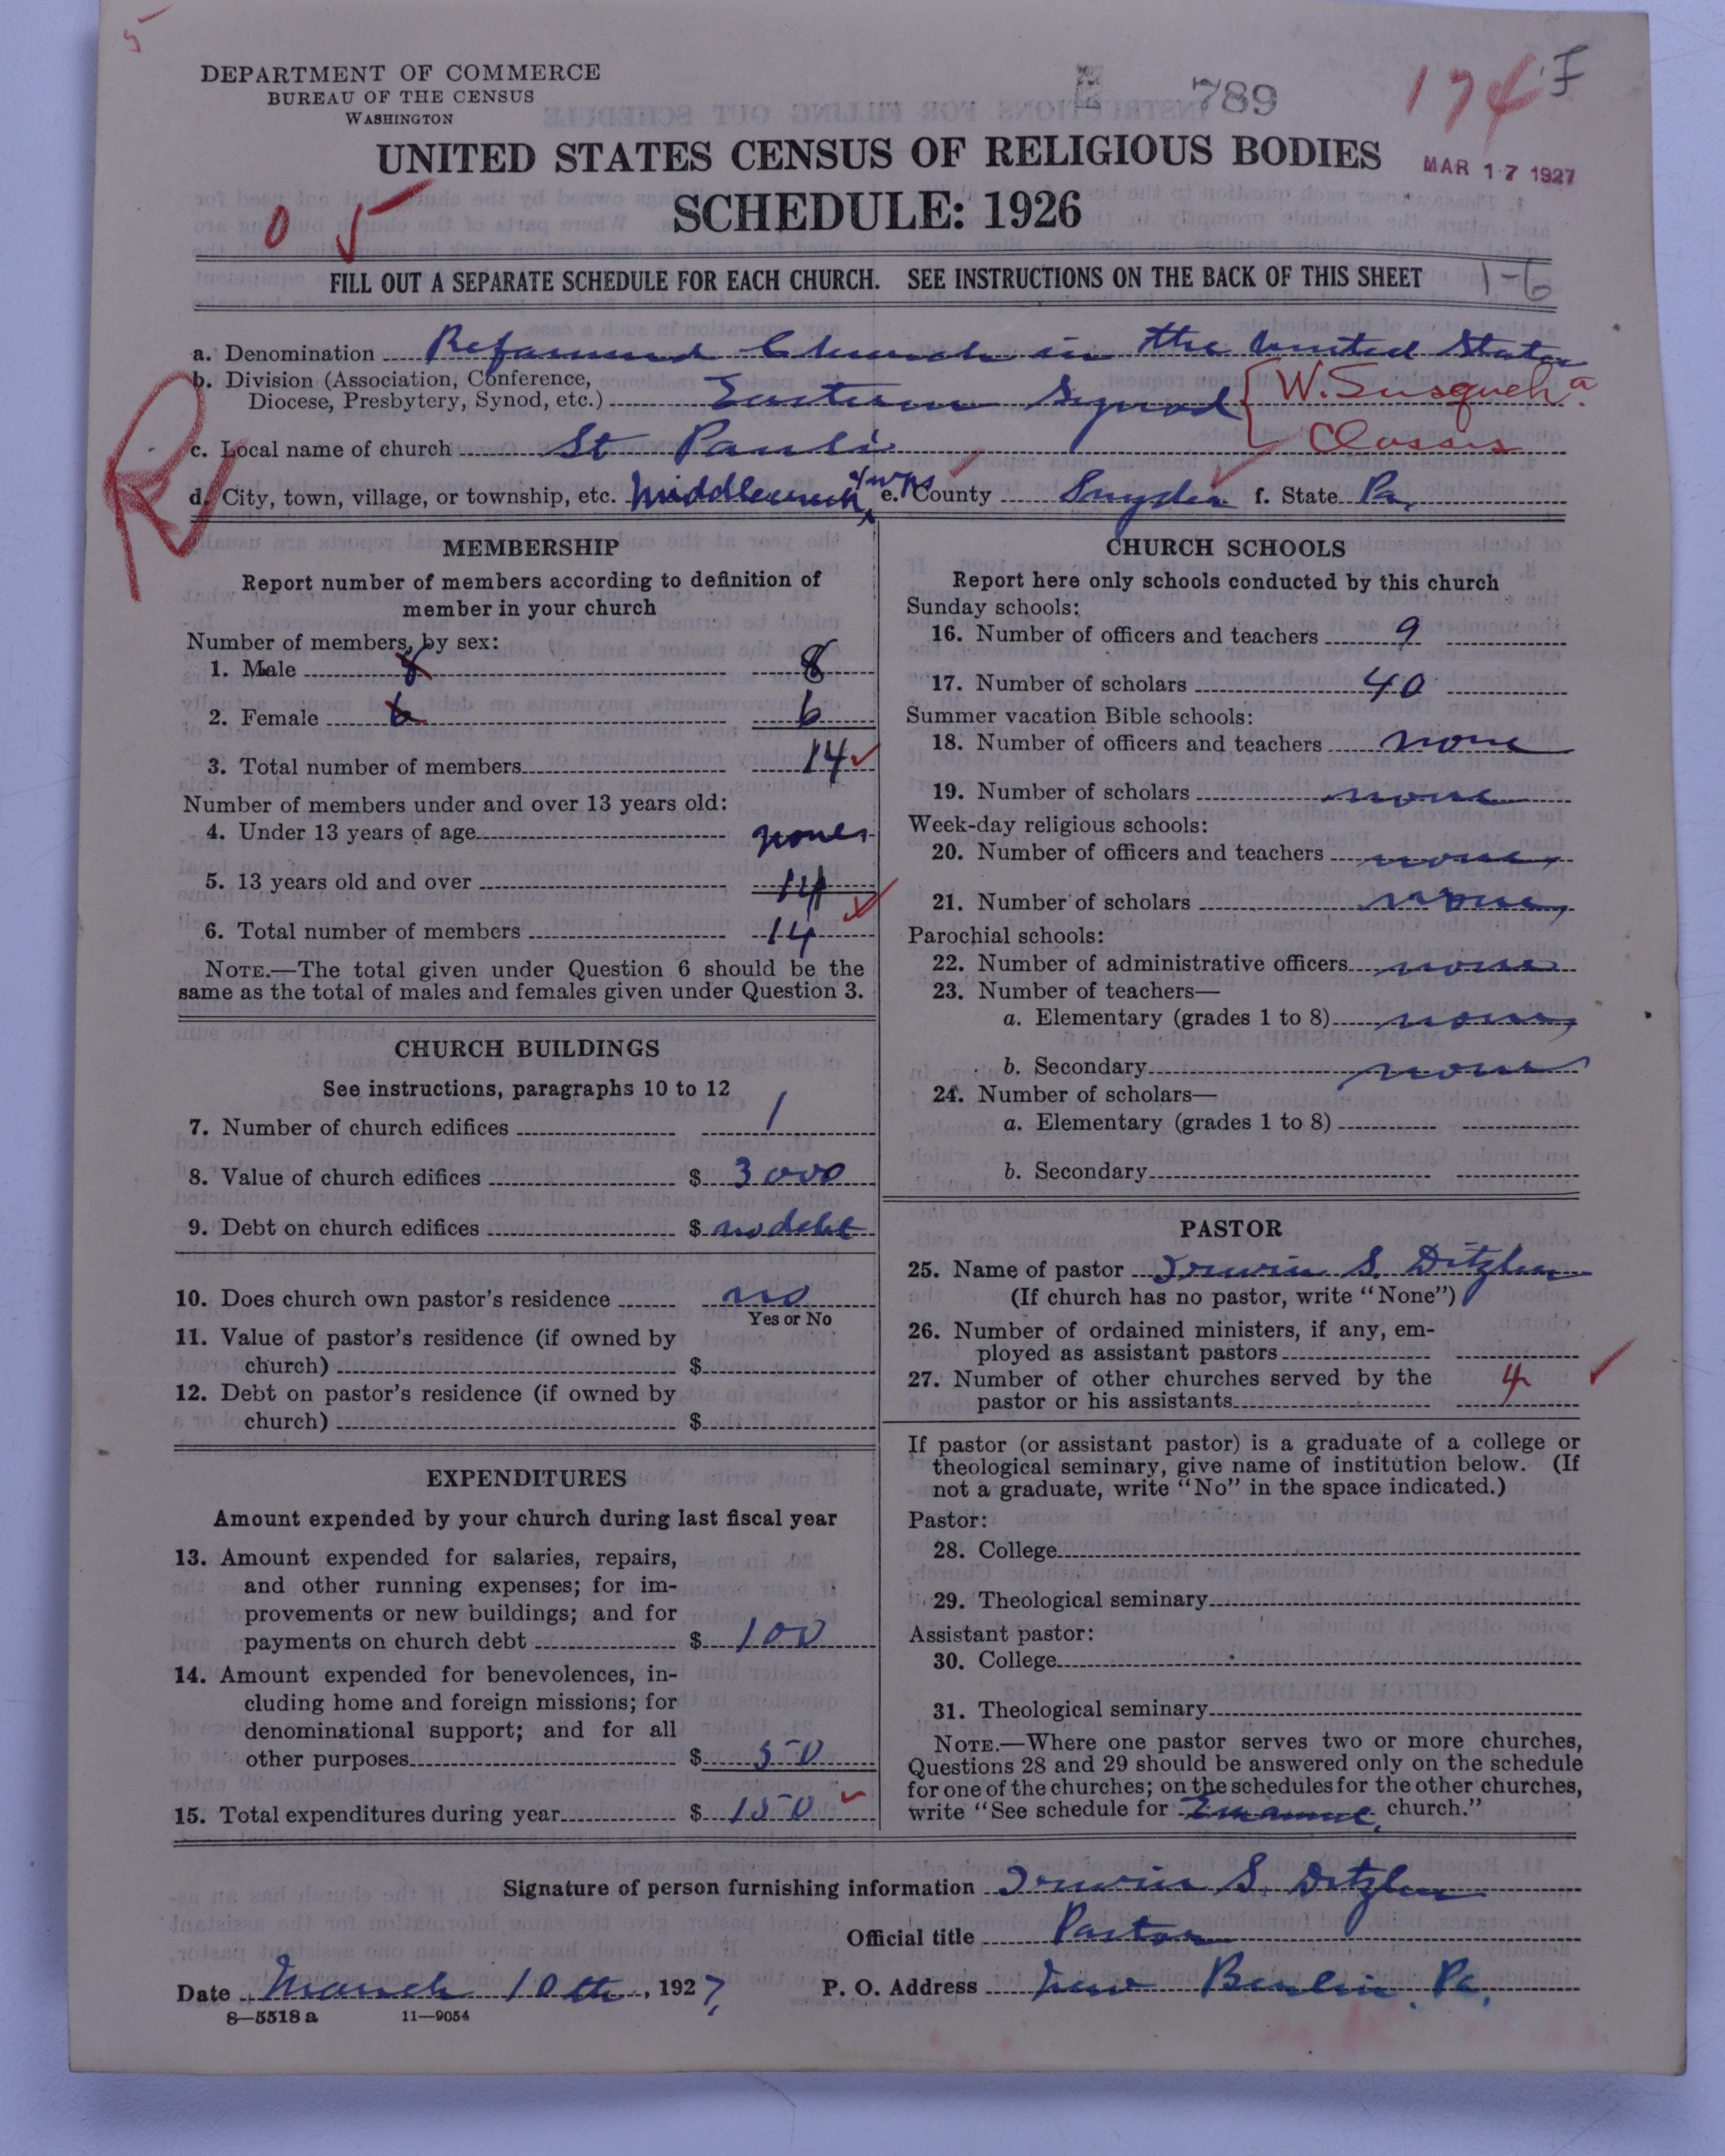 5
DEPARTMENT OF COMMERCE
BUREAU OF THE CENSUS
WASHINGTON
789
174
F
UNITED STATES CENSUS OF RELIGIOUS BODIES
MAR 17 1927
SCHEDULE: 1926
0 5
FILL OUT A SEPARATE SCHEDULE FOR EACH CHURCH. SEE INSTRUCTIONS ON THE BACK OF THIS SHEET
1-6
a. Denomination Reformed Church in the United States
b. Division (Association, Conference,
Diocese, Presbytery, Synod, etc.) Eastern Synod { W. Susqueha.
Classis
c. Local name of church St Pauls
d. City, town, village, or township, etc. Middlecreek twp e. County Snyder f. State Pa.
R
MEMBERSHIP
Report number of members according to definition of
member in your church
Number of members, by sex:
1. Male 8 8
2. Female 6 6
3. Total number of members 14
Number of members under and over 13 years old:
4. Under 13 years of age none
5. 13 years old and over 14
6. Total number of members 14
NOTE.—The total given under Question 6 should be the
same as the total of males and females given under Question 3.
CHURCH BUILDINGS
See instructions, paragraphs 10 to 12
7. Number of church edifices 1
8. Value of church edifices $ 3000
9. Debt on church edifices $ no debt
10. Does church own pastor's residence no
Yes or No
11. Value of pastor's residence (if owned by
church) $
12. Debt on pastor's residence (if owned by
church) $
EXPENDITURES
Amount expended by your church during last fiscal year
13. Amount expended for salaries, repairs,
and other running expenses; for im-
provements or new buildings; and for
payments on church debt $ 100
14. Amount expended for benevolences, in-
cluding home and foreign missions; for
denominational support; and for all
other purposes $ 50
15. Total expenditures during year $ 150
CHURCH SCHOOLS
Report here only schools conducted by this church
Sunday schools:
16. Number of officers and teachers 9
17. Number of scholars 40
Summer vacation Bible schools:
18. Number of officers and teachers none
19. Number of scholars none
Week-day religious schools:
20. Number of officers and teachers none
21. Number of scholars none
Parochial schools:
22. Number of administrative officers none
23. Number of teachers—
a. Elementary (grades 1 to 8) none
b. Secondary none
24. Number of scholars—
a. Elementary (grades 1 to 8)
b. Secondary
PASTOR
25. Name of pastor Irwin S. Ditzler
(If church has no pastor, write "None")
26. Number of ordained ministers, if any, em-
ployed as assistant pastors
27. Number of other churches served by the
pastor or his assistants 4
If pastor (or assistant pastor) is a graduate of a college or
theological seminary, give name of institution below. (If
not a graduate, write "No" in the space indicated.)
Pastor:
28. College
29. Theological seminary
Assistant pastor:
30. College
31. Theological seminary
NOTE.—Where one pastor serves two or more churches,
Questions 28 and 29 should be answered only on the schedule
for one of the churches; on the schedules for the other churches,
write "See schedule for Emanuel church."
Signature of person furnishing information Irwin S. Ditzler
Official title Pastor
Date March 10th, 1927. P. O. Address New Berlin, Pa.
8—5518 a 11—9054